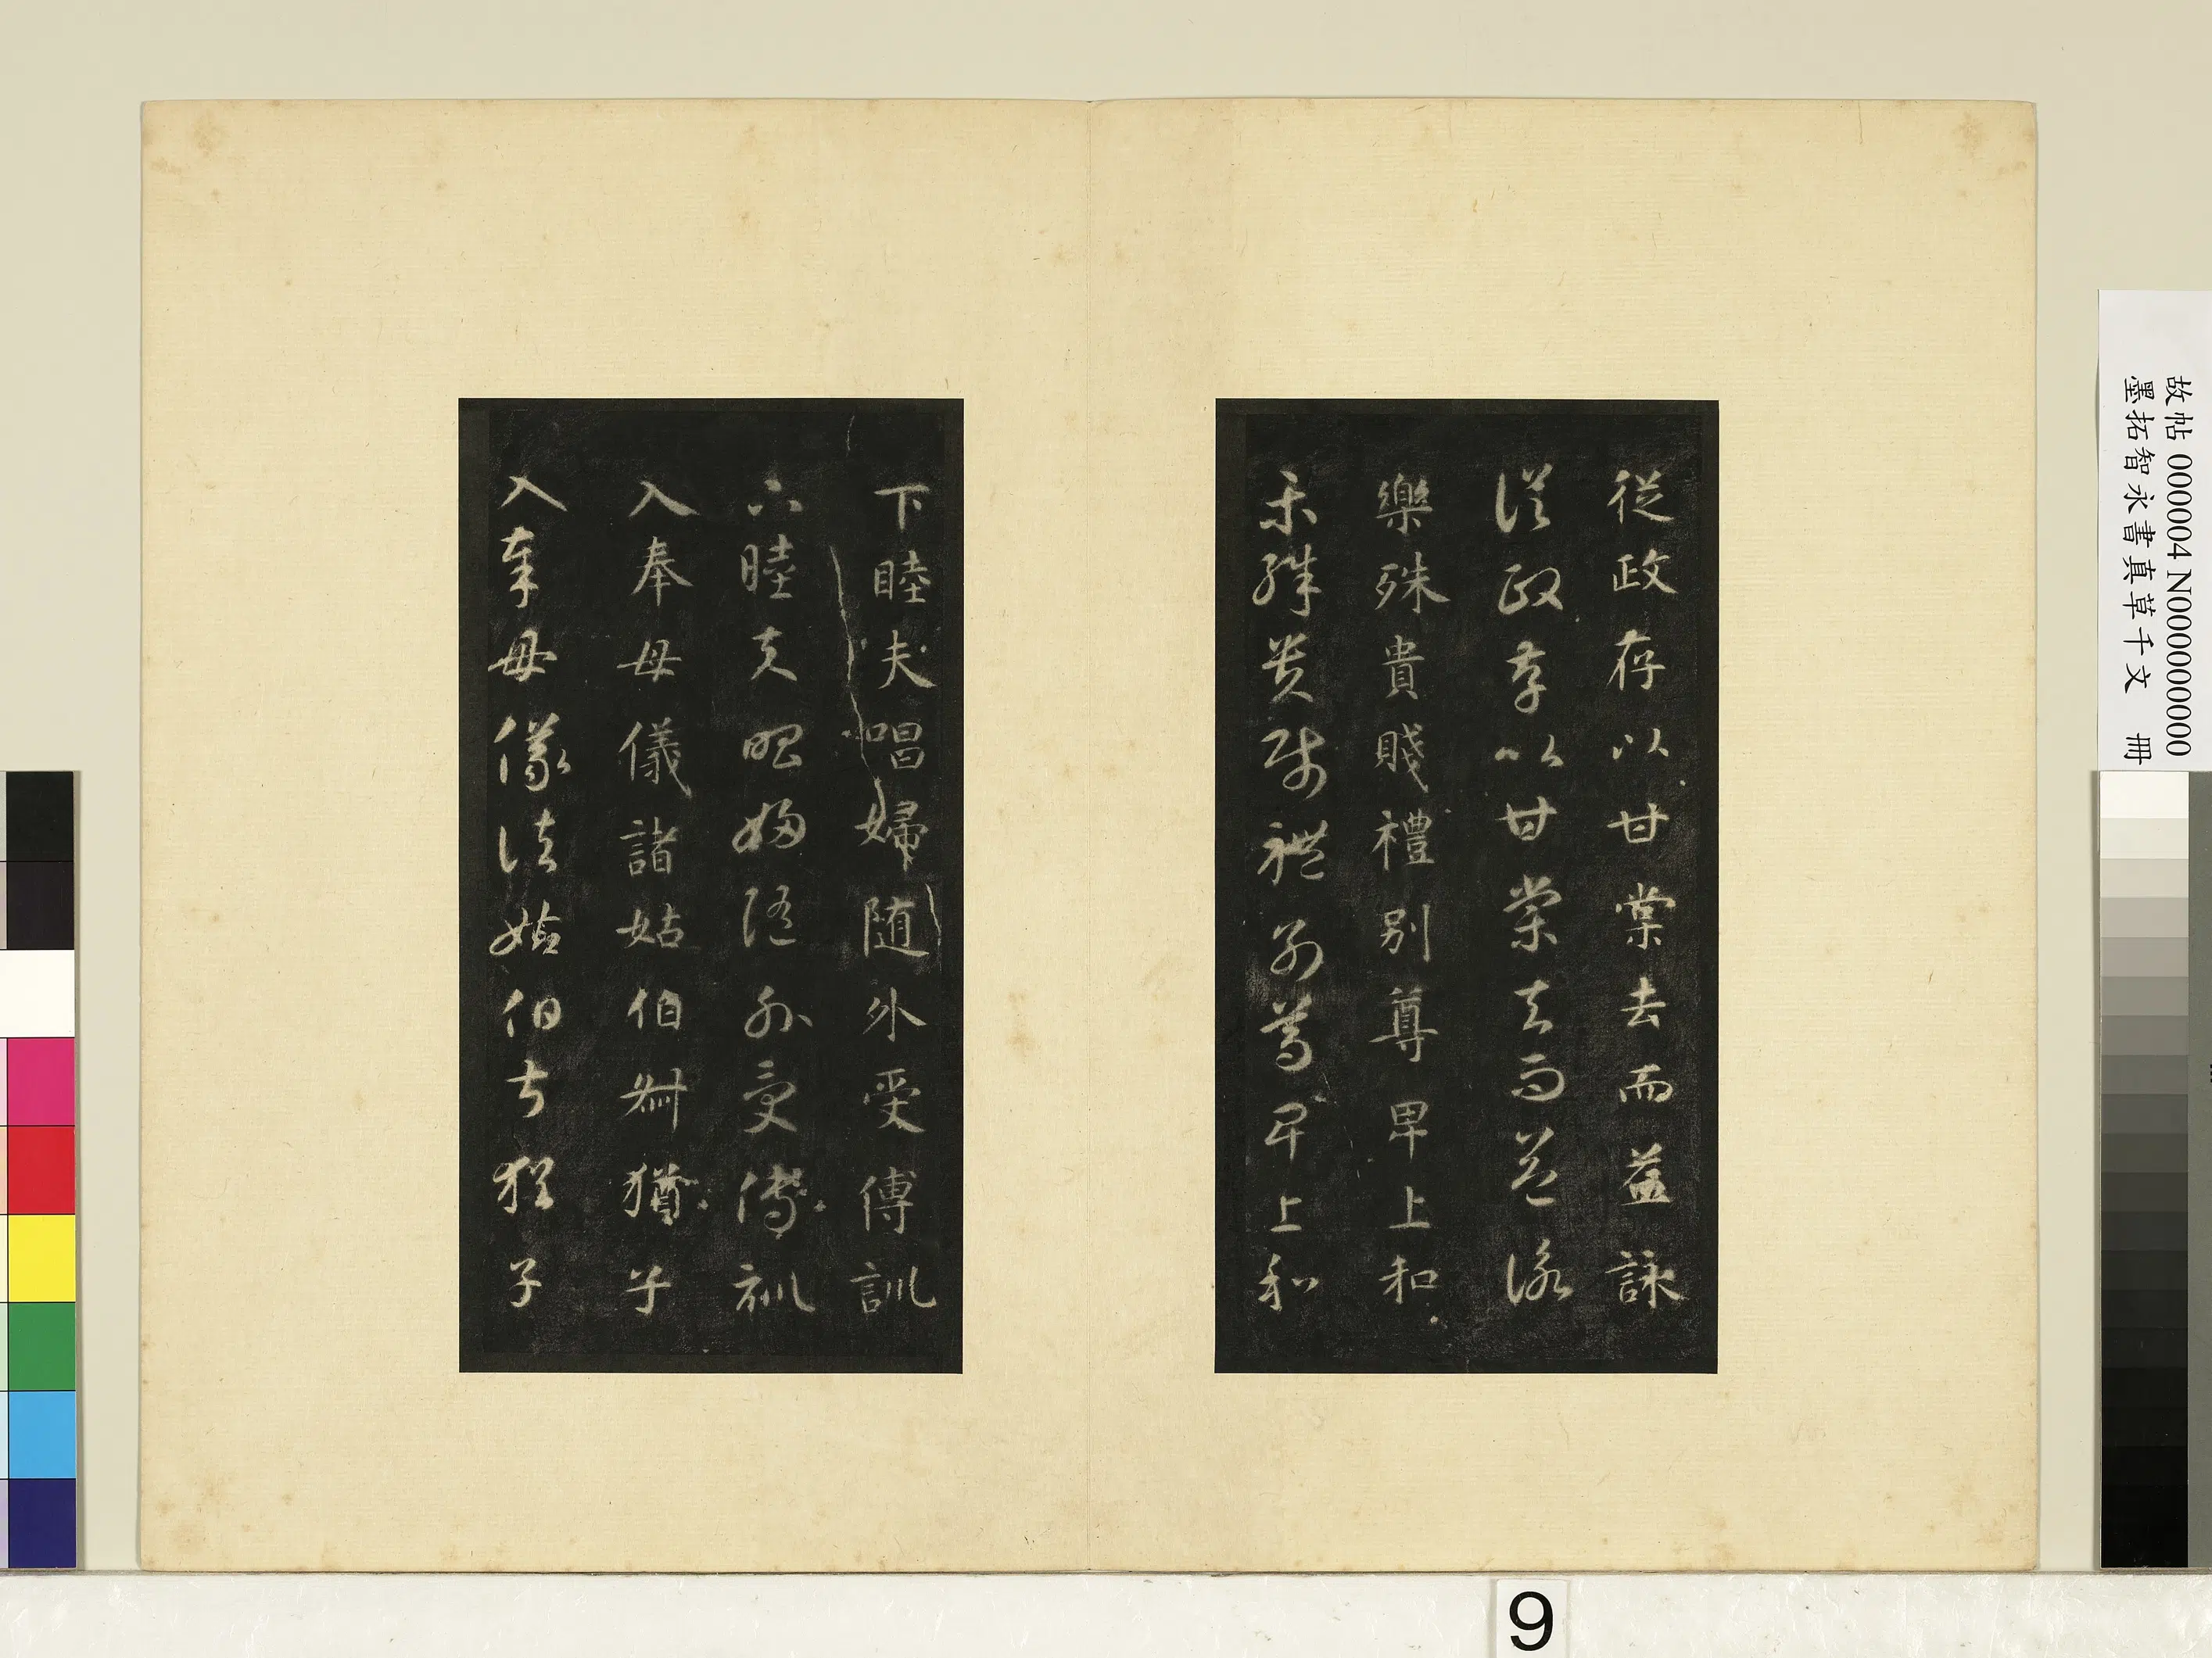 從政存以甘棠去而益詠
從政存以甘棠去而益詠
樂殊貴賤禮別尊卑上和
樂殊貴賤禮別尊卑上和
下睦夫唱婦随外受傅訓
下睦夫唱婦随外受傅訓
入奉母儀諸姑伯叔猶子
入奉母儀諸姑伯叔猶子
故帖 000004 N000000000
墨拓智永書真草千文 冊
9